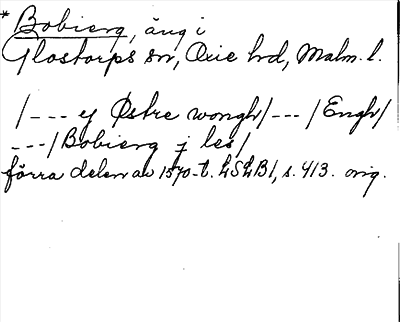 * Bobierg, äng i
Glostorps sn, Oxie hd, Malm. l.
/--- ej Østre wongh/ --- /Engh/
---/Bobierg j les/
förra delen av 1570-t. LSLB1, s. 413. orig.